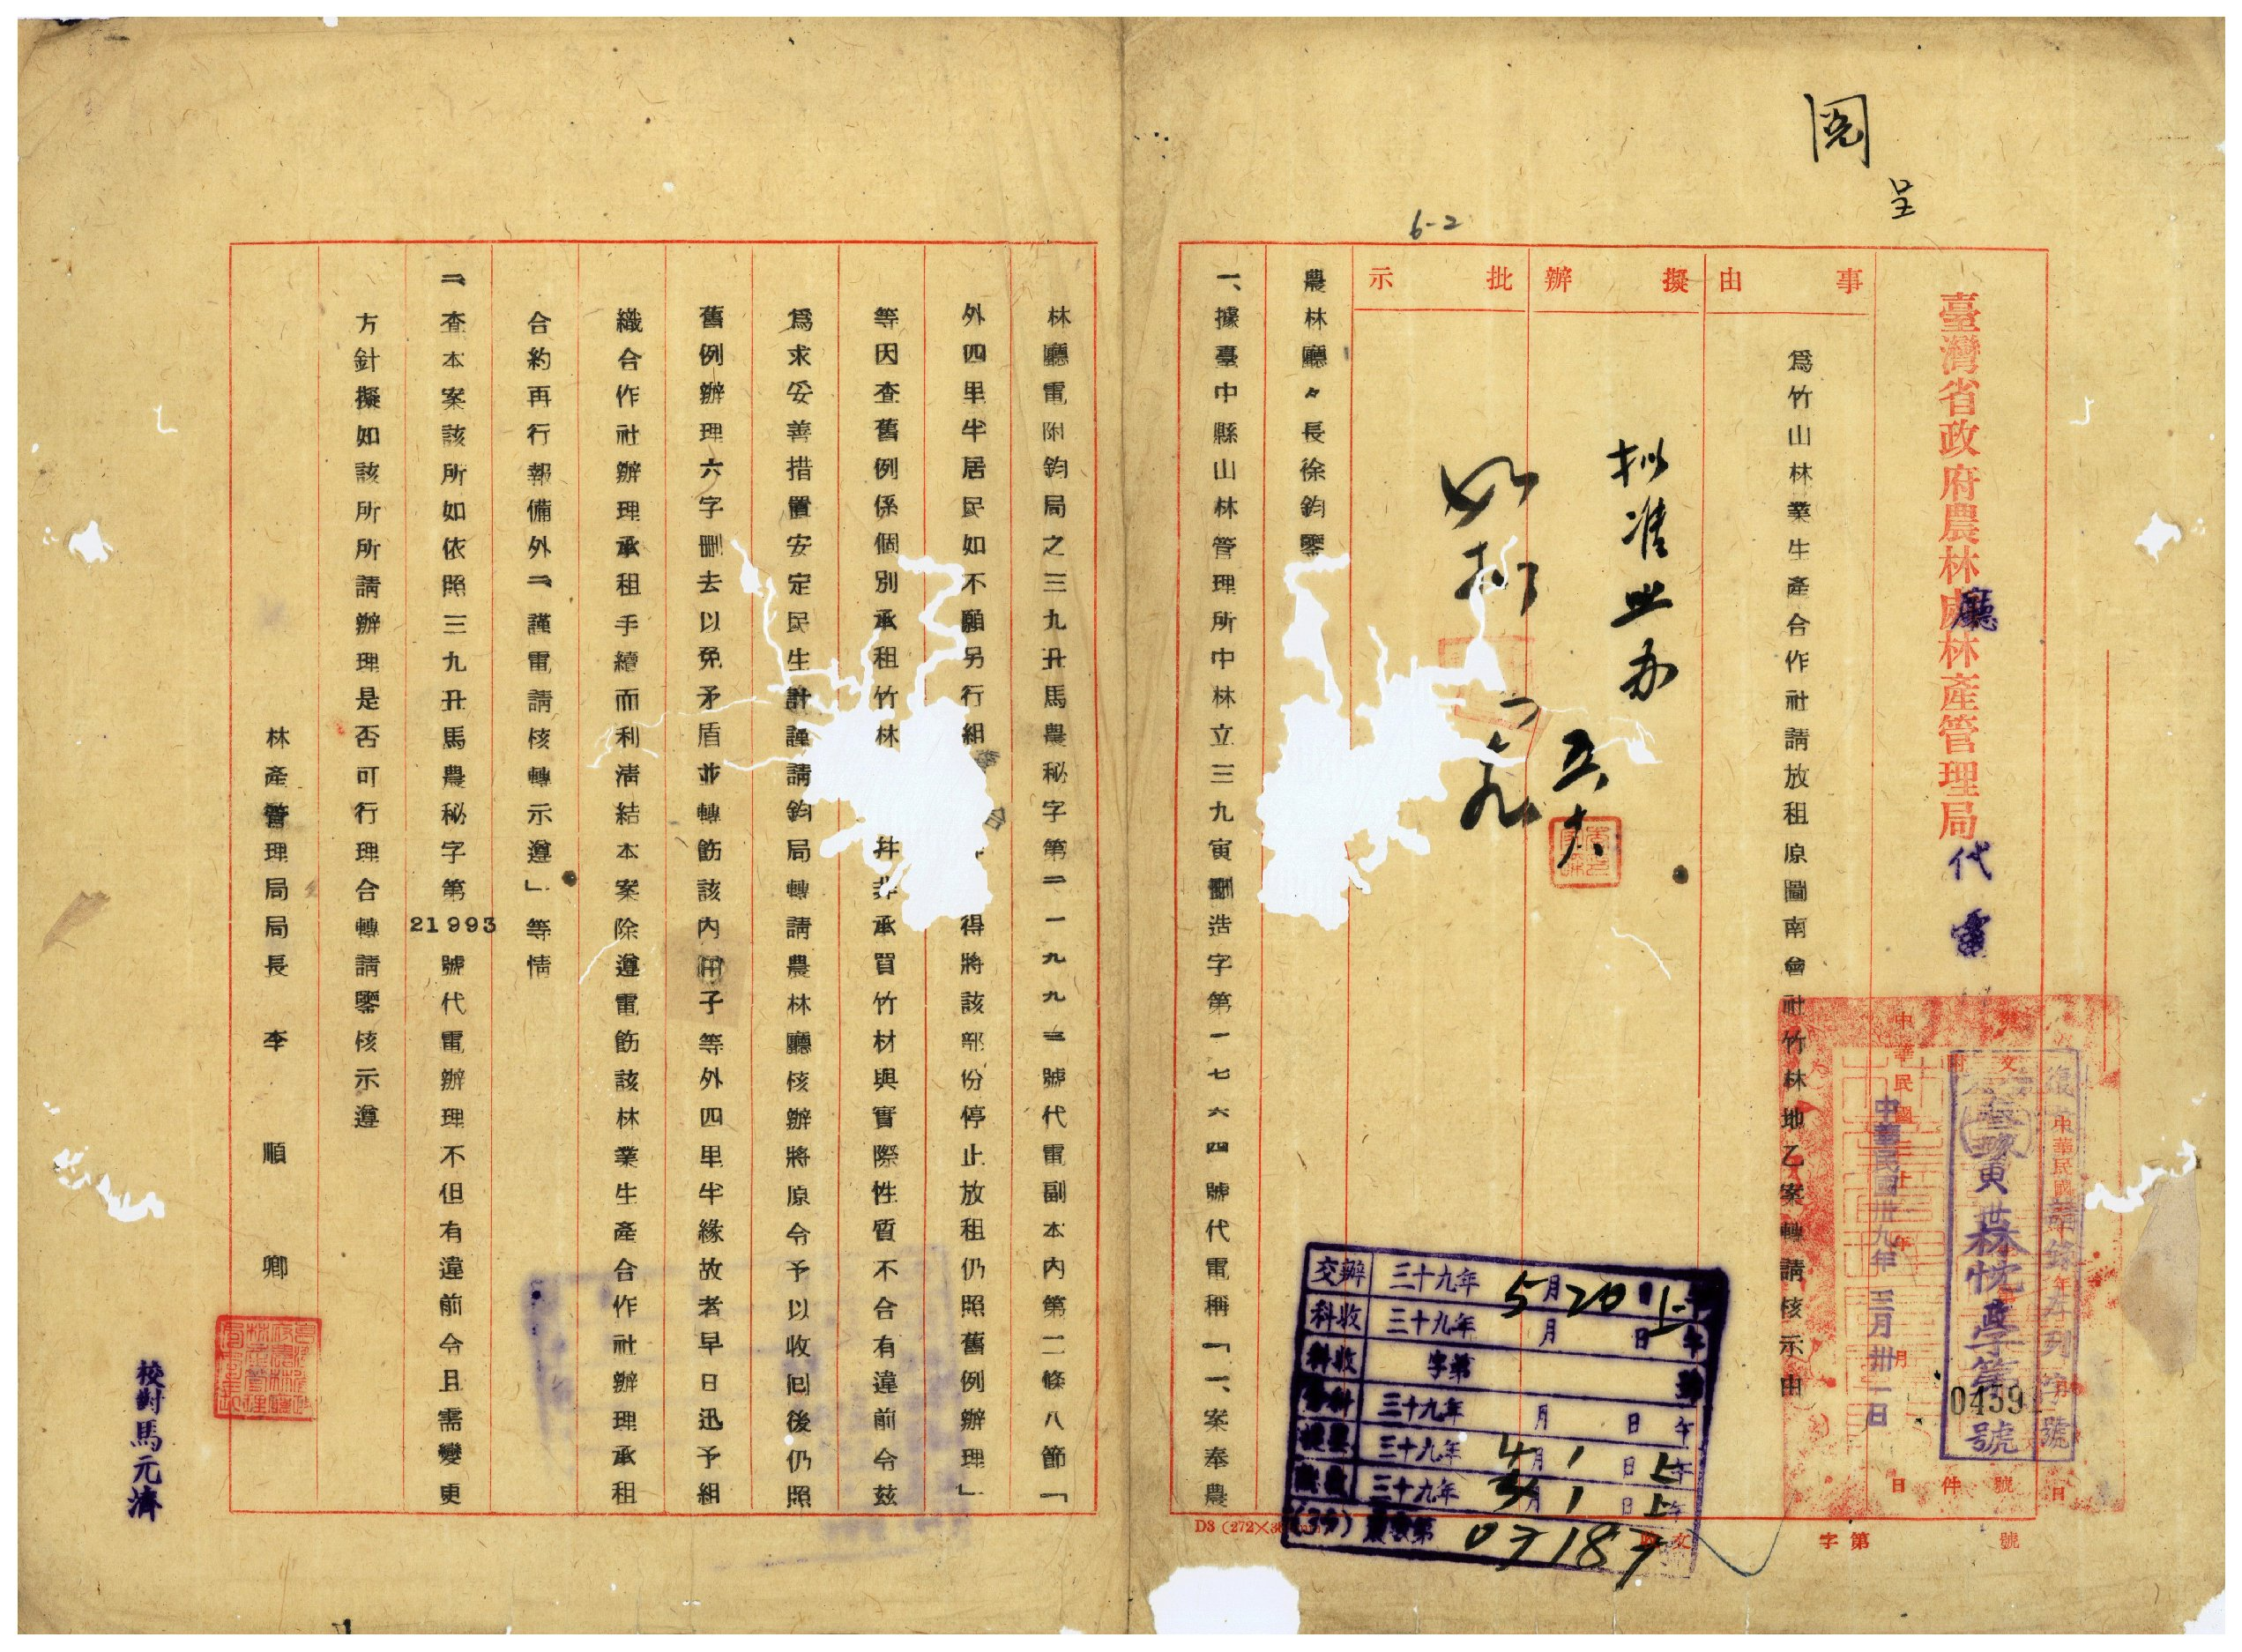 閱
呈
6-2
臺灣省政府農林處林產管理局
廳
代電
事由
擬辦
批示
爲竹山林業生產合作社請放租原圖南會社竹林地乙案轉請核示由
拟准照办
五
如拟
中華民國卅九年三月卅一日
0459
號
農林廳々長徐鈞鑒
一、據臺中縣山林管理所中林立三九寅刪造字第一七六四號代電稱「一、案奉農
林廳電附鈞局之三九丑馬農秘字第二一九九三號代電副本內第二條八節「
外四里半居民如不願另行組
得將該部份停止放租仍照舊例辦理」
等因查舊例係個別承租竹林
幷非承買竹材與實際性質不合有違前令茲
爲求妥善措置安定民生計謹請鈞局轉請農林廳核辦將原令予以收囘後仍照
舊例辦理六字刪去以免矛盾並轉飭該內
子等外四里半緣故者早日迅予組
織合作社辦理承租手續而利清結本案除遵電飭該林業生產合作社辦理承租
合約再行報備外二、謹電請核轉示遵」等情
二、查本案該所如依照三九丑馬農秘字第21993號代電辦理不但有違前令且需變更
方針擬如該所所請辦理是否可行理合轉請鑒核示遵
林產管理局局長 李順卿
校對馬元濟
交辦 三十九年 5月20日上午
科收 三十九年 月 日 午
科收 字第 號
三十九年 月 日 午
三十九年 4月1日上午
三十九年 月1日上午
(39) 第03187
D3 (272×3
字第 號